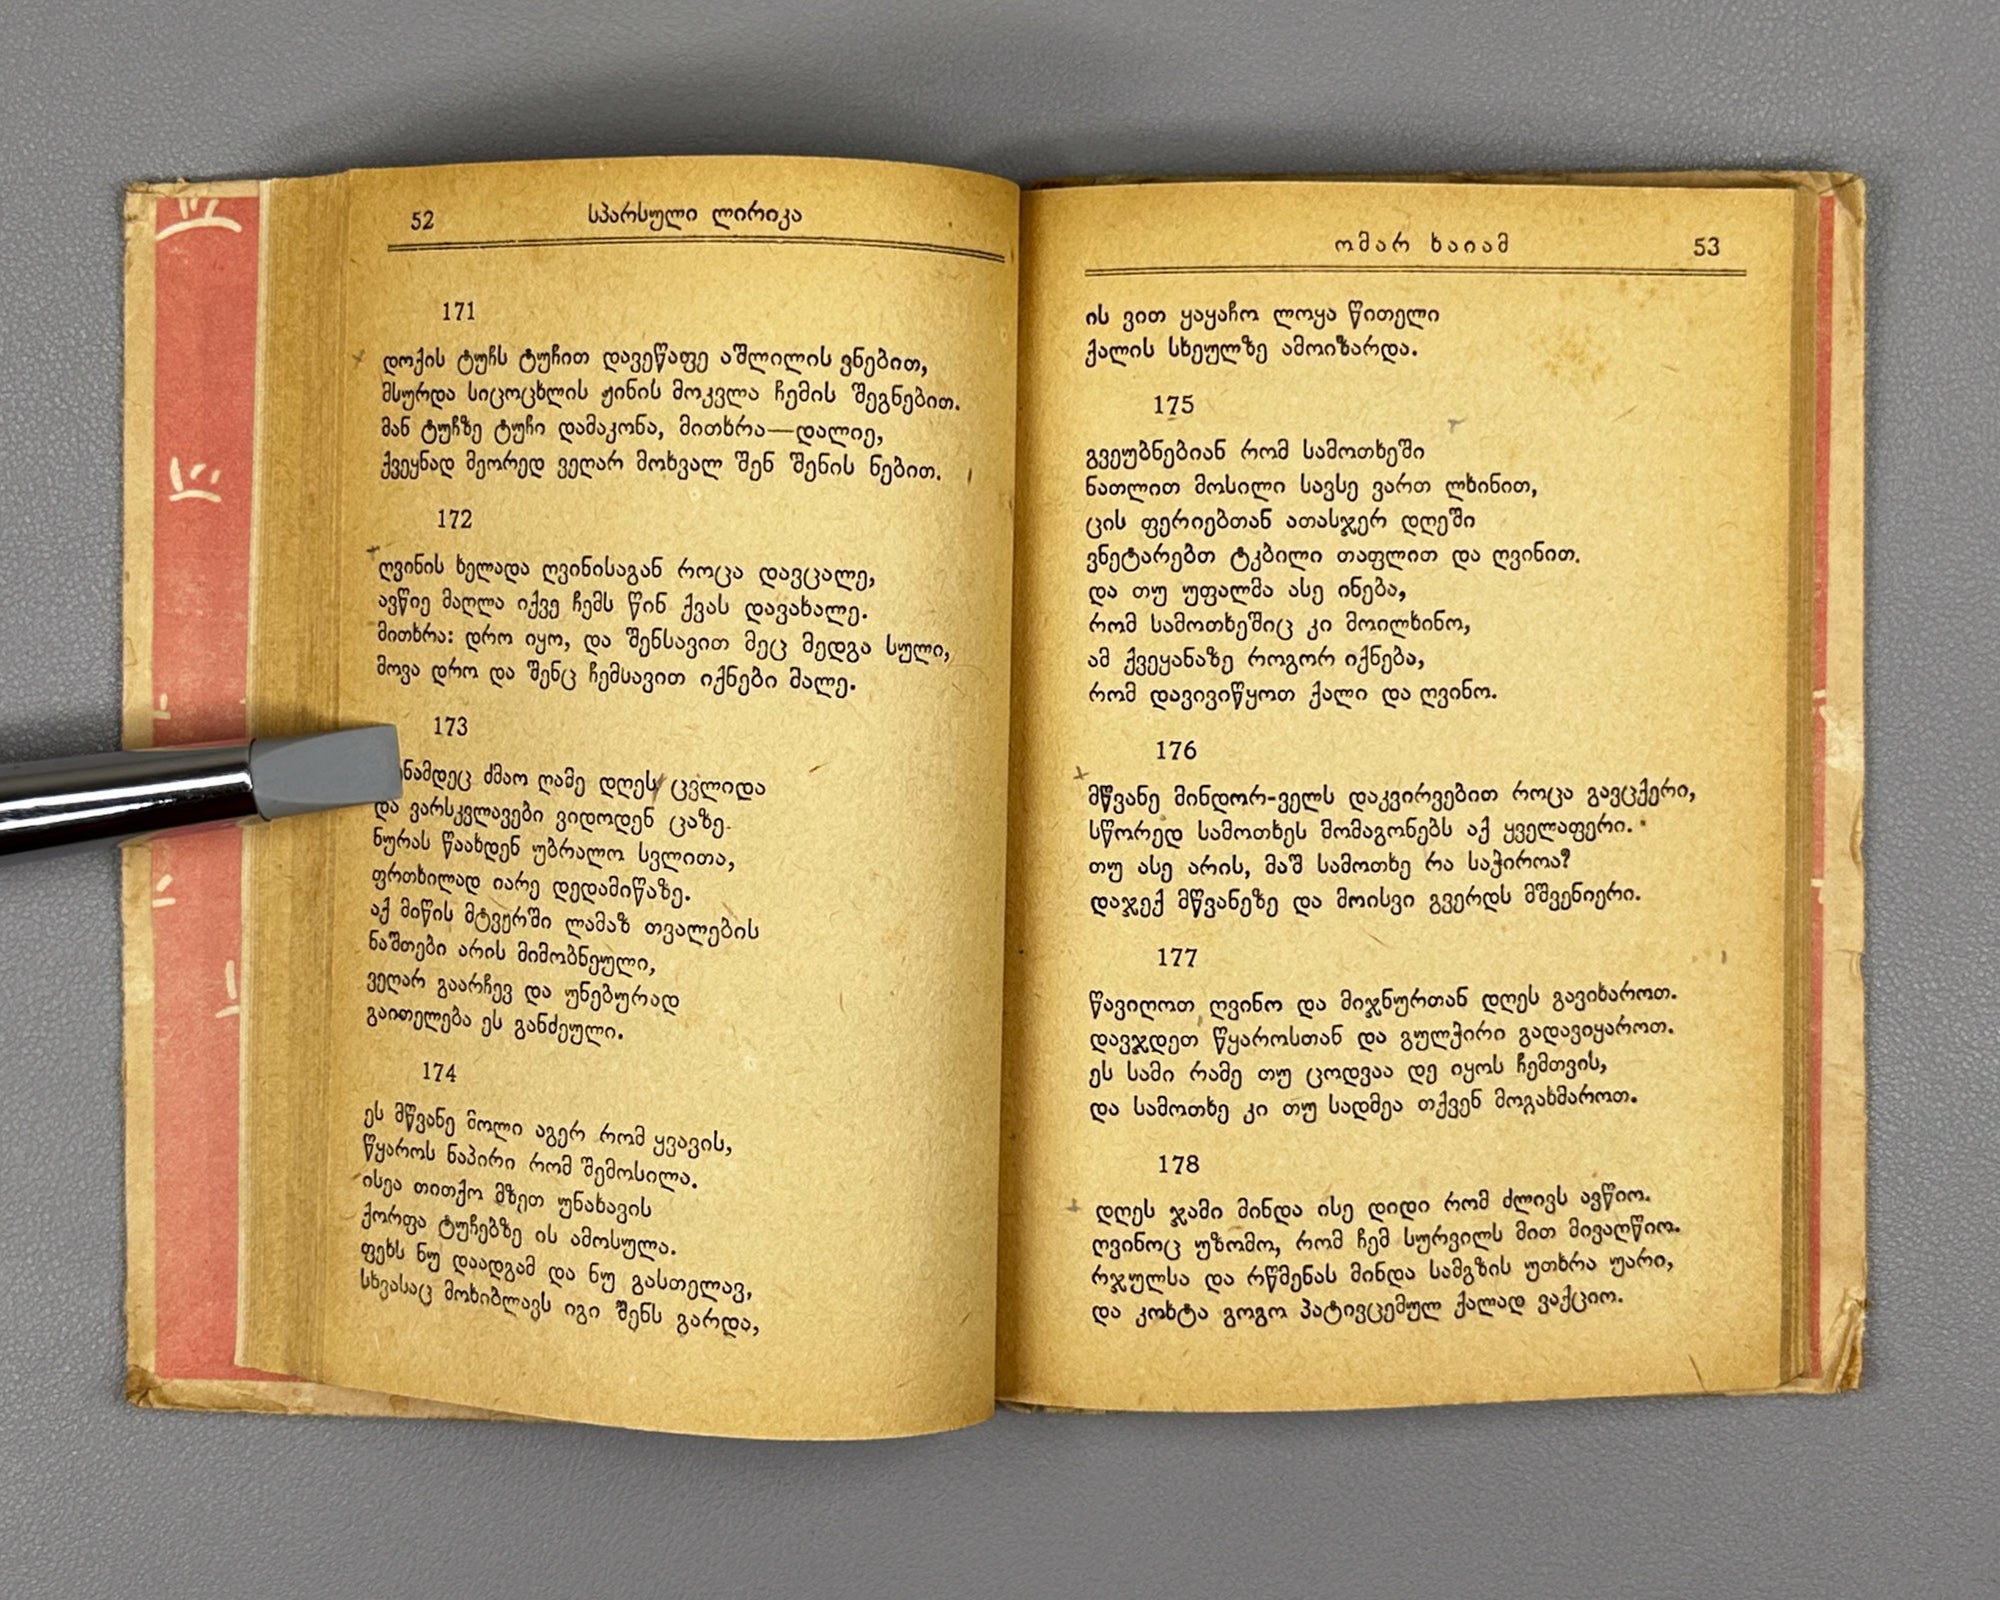 52 სპარსული ლირიკა
171
დოქის ტუჩს ტუჩით დავეწაფე აშლილის ვნებით,
მსურდა სიცოცხლის ჟინის მოკვლა ჩემის შეგნებით.
მან ტუჩზე ტუჩი დამაკონა, მითხრა—დალიე,
ქვეყნად მეორედ ვეღარ მოხვალ შენ შენის ნებით.
172
ღვინის ხელადა ღვინისაგან როცა დავცალე,
ავწიე მაღლა იქვე ჩემს წინ ქვას დავახალე.
მითხრა: დრო იყო, და შენსავით მეც მედგა სული,
მოვა დრო და შენც ჩემსავით იქნები მალე.
173
ძმაო ღამე დღეს ცვლიდა
და ვარსკვლავები ვიდოდენ ცაზე.
ნურას წაახდენ უბრალო სვლითა,
ფრთხილად იარე დედამიწაზე.
აქ მიწის მტვერში ლამაზ თვალების
ნაშთები არის მიმობნეული,
ვეღარ გაარჩევ და უნებურად
გაითელება ეს განძეული.
174
ეს მწვანე მოლი აგერ რომ ყვავის,
წყაროს ნაპირი რომ შემოსილა.
ისეა თითქო მზეთ უნახავის
ქორფა ტუჩებზე ის ამოსულა.
ფეხს ნუ დაადგამ და ნუ გასთელავ,
სხვასაც მოხიბლავს იგი შენს გარდა,
ომარ ხაიამ 53
ის ვით ყაყაჩო ლოყა წითელი
ქალის სხეულზე ამოიზარდა.
175
გვეუბნებიან რომ სამოთხეში
ნათლით მოსილი სავსე ვართ ლხინით,
ცის ფერიებთან ათასჯერ დღეში
ვნეტარებთ ტკბილი თაფლით და ღვინით.
და თუ უფალმა ასე ინება,
რომ სამოთხეშიც კი მოილხინო,
ამ ქვეყანაზე როგორ იქნება,
რომ დავივიწყოთ ქალი და ღვინო.
176
მწვანე მინდორ-ველს დაკვირვებით როცა გავცქერი,
სწორედ სამოთხეს მომაგონებს აქ ყველაფერი.
თუ ასე არის, მაშ სამოთხე რა საჭიროა?
დაჯექ მწვანეზე და მოისვი გვერდს მშვენიერი.
177
წავიღოთ ღვინო და მიჯნურთან დღეს გავიხაროთ.
დავჯდეთ წყაროსთან და გულჭირი გადავიყაროთ.
ეს სამი რამე თუ ცოდვაა დე იყოს ჩემთვის,
და სამოთხე კი თუ სადმეა თქვენ მოგახმაროთ.
178
დღეს ჯამი მინდა ისე დიდი რომ ძლივს ავწიო.
ღვინოც უზომო, რომ ჩემ სურვილს მით მივაღწიო.
რჯულსა და რწმენას მინდა სამგზის უთხრა უარი,
და კოხტა გოგო პატივცემულ ქალად ვაქციო.